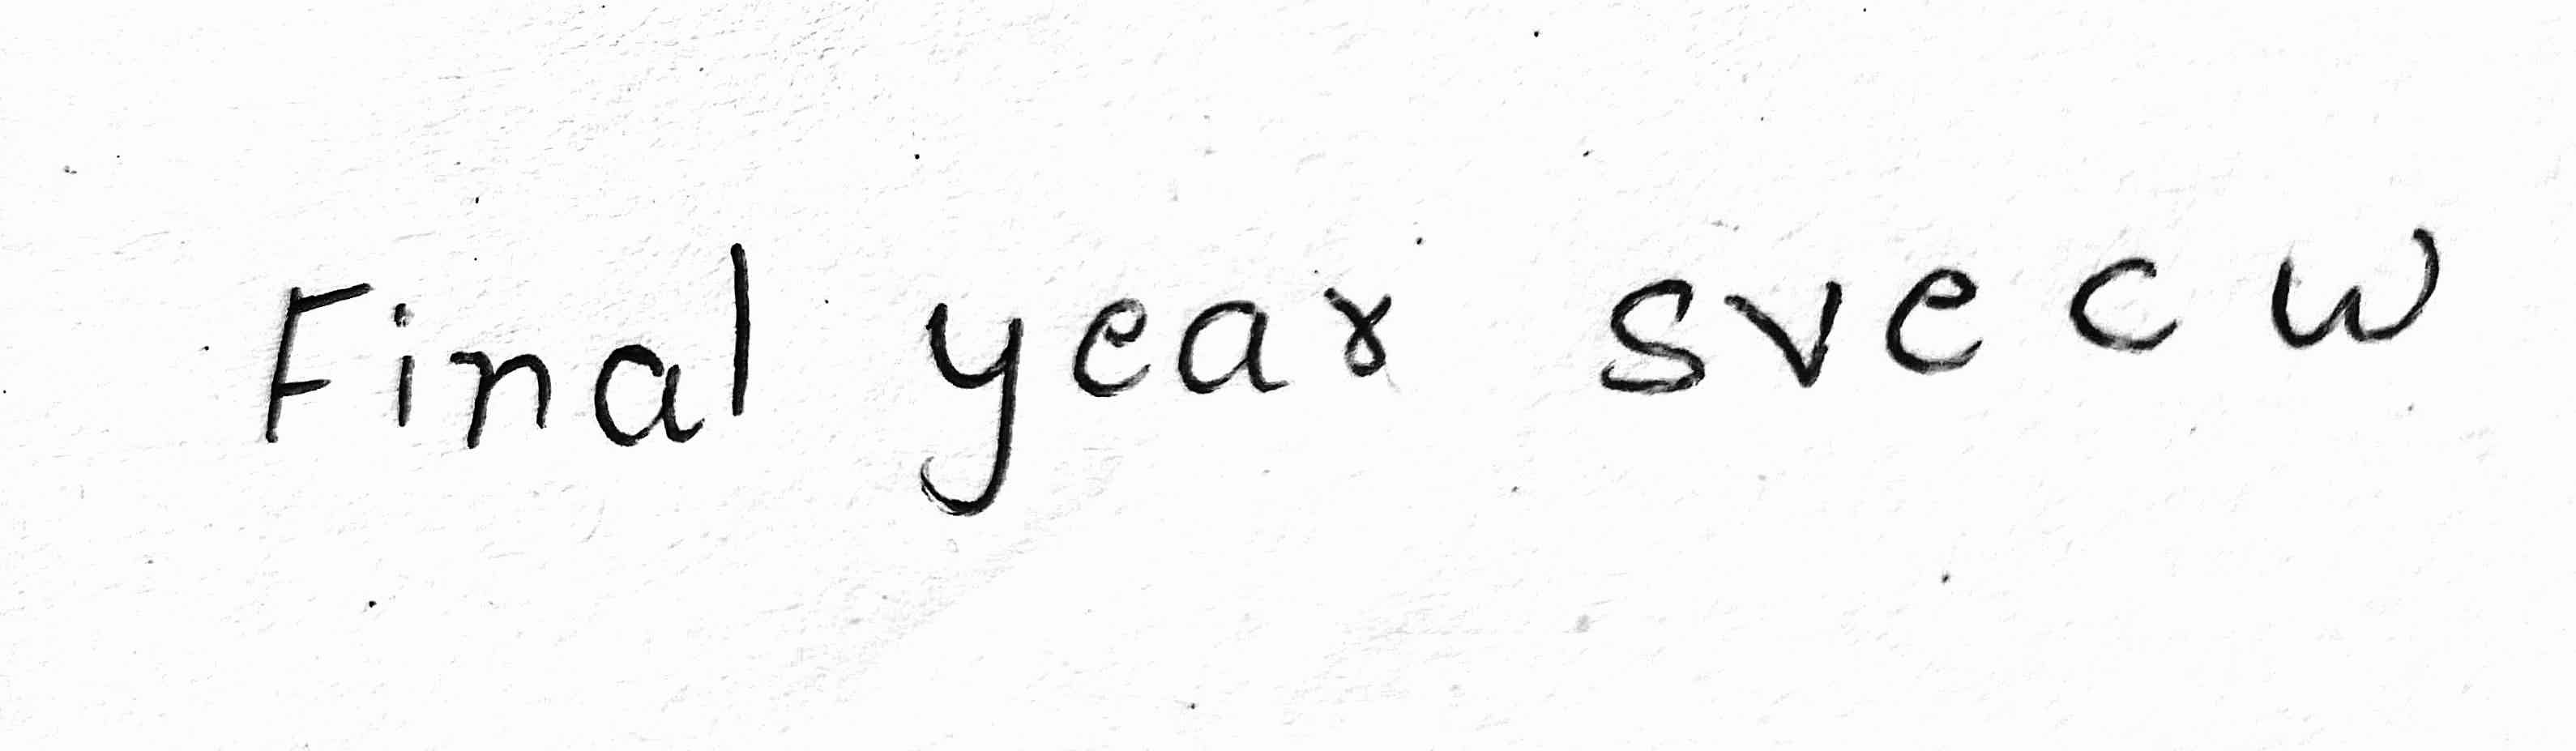 Final year svecw